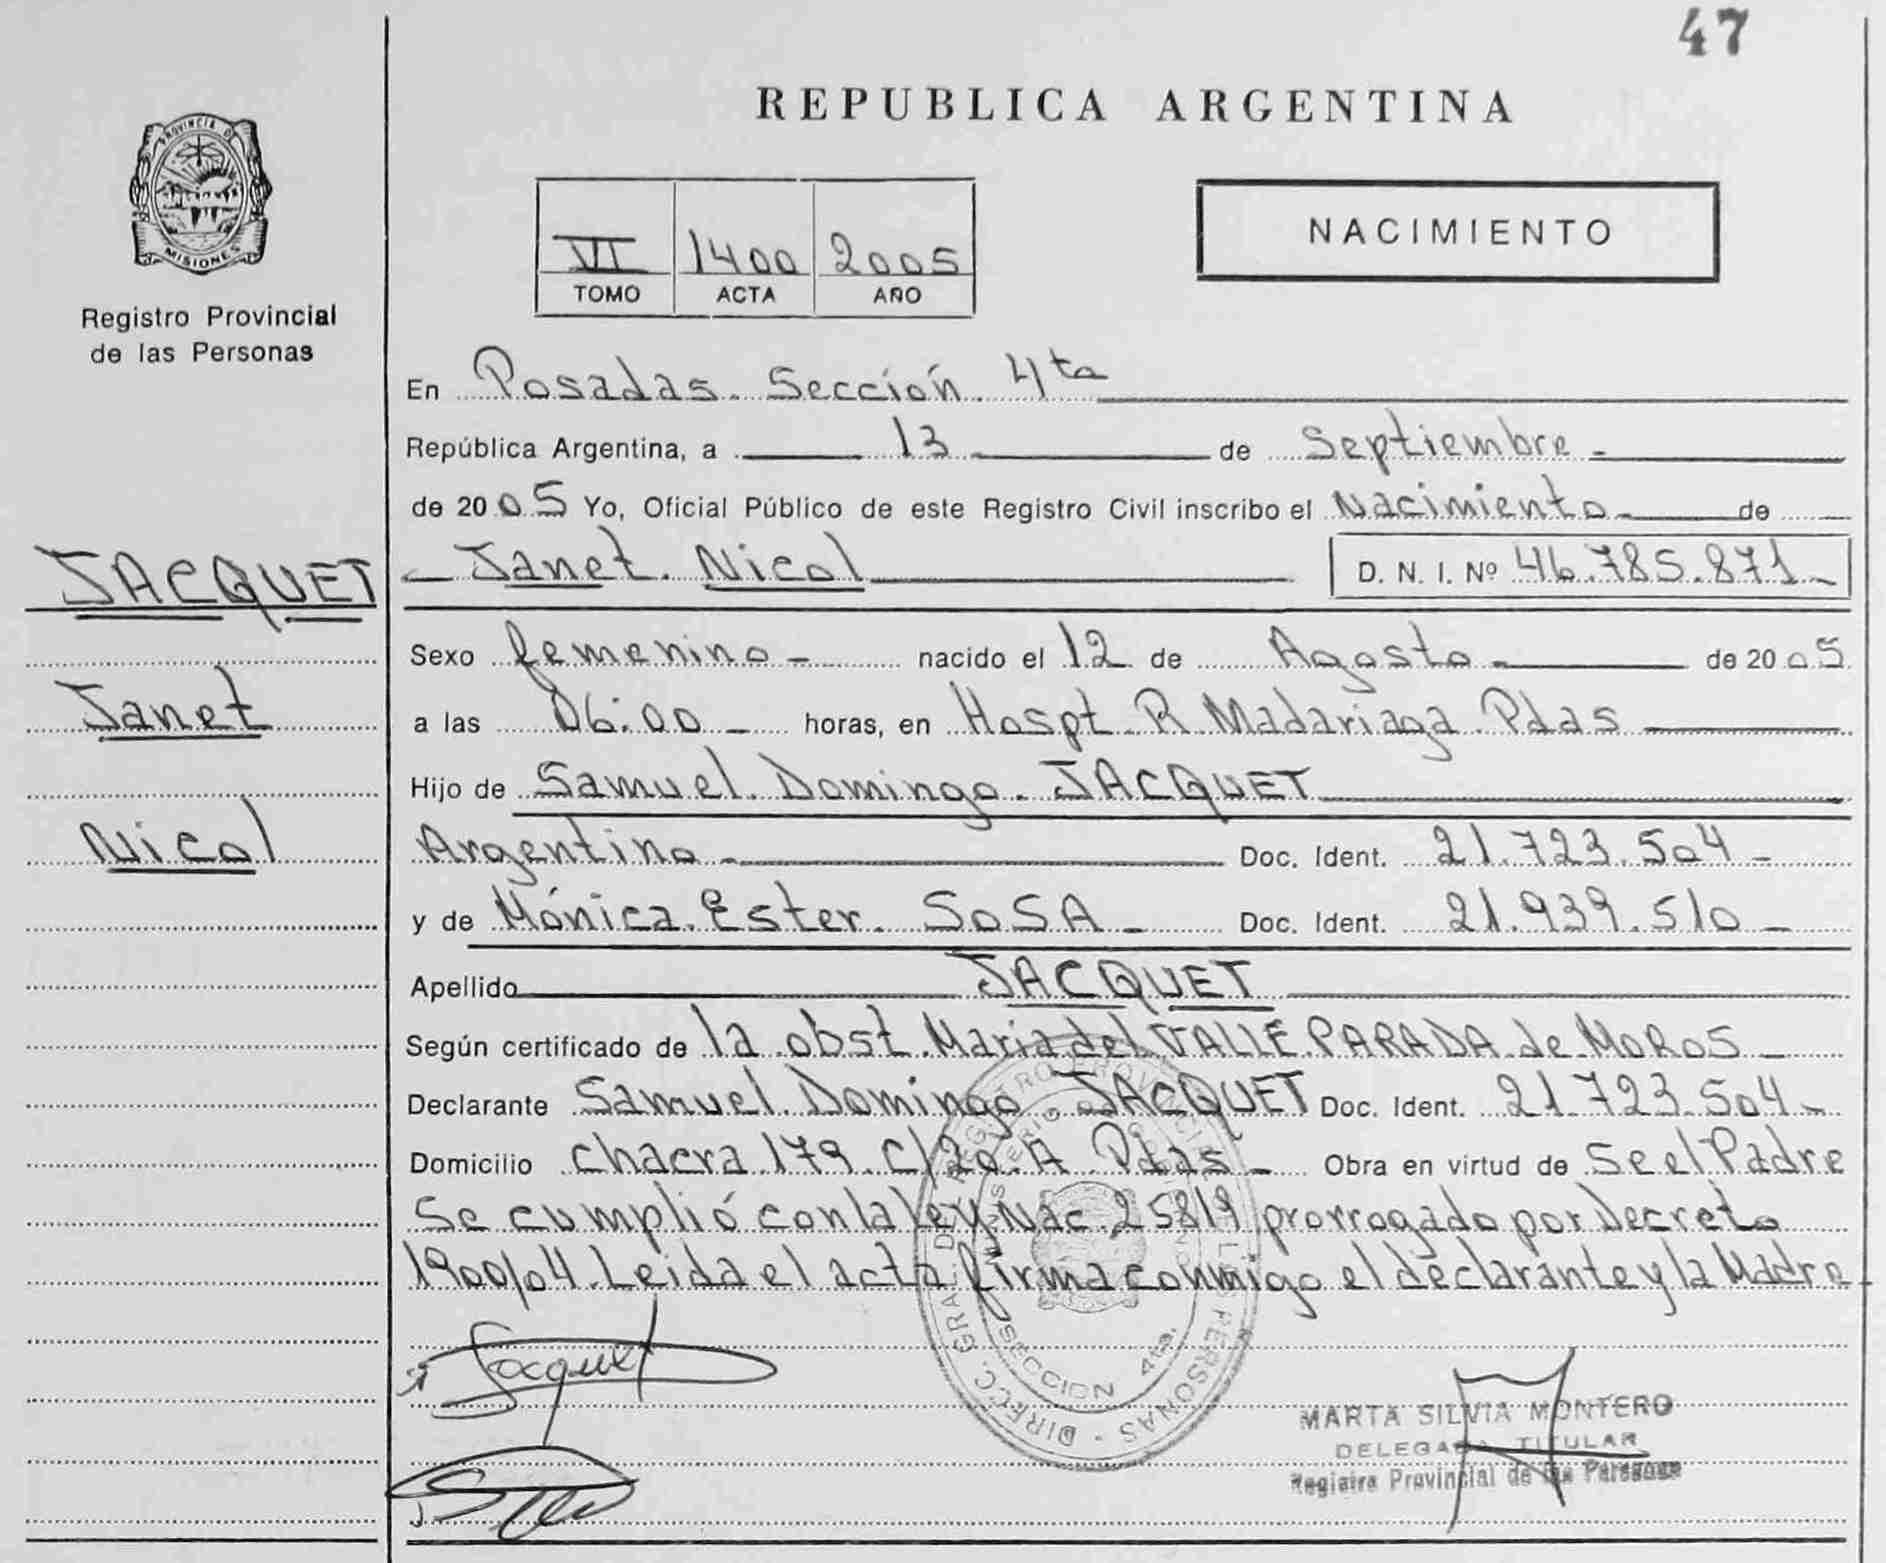 47
REPUBLICA ARGENTINA
PROVINCIA DE
MISIONES
Registro Provincial
de las Personas
VI 1400 2005
TOMO ACTA AÑO
NACIMIENTO
En Posadas. Sección 4ta
República Argentina, a 13 de Septiembre
de 2005 Yo, Oficial Público de este Registro Civil inscribo el Nacimiento de
JACQUET
Janet Nicol D. N. I. Nº 46.785.871
Sexo femenino nacido el 12 de Agosto de 2005
Janet
a las 06:00 horas, en Hospt. R. Madariaga. Pdas
Hijo de Samuel Domingo JACQUET
Nicol
Argentino Doc. Ident. 21.723.504
y de Mónica Ester SOSA Doc. Ident. 21.939.510
Apellido JACQUET
Según certificado de la obst. Maria del VALLE PARADA de MOROS
Declarante Samuel Domingo JACQUET Doc. Ident. 21.723.504
Domicilio chacra 179. C/20. A Pdas Obra en virtud de Se el Padre
Se cumplió con la ley Nac. 25819 prorrogado por Decreto
1900/04. Leida el acta firma conmigo el declarante y la Madre
Jacquet
DIRECC. GRAL. DEL REGISTRO PROVINCIAL DE LAS PERSONAS
SECCION 4ta.
MARTA SILVIA MONTERO
DELEGADA TITULAR
Registro Provincial de las Personas